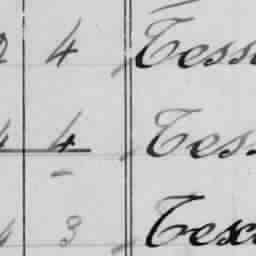 4 Tess
4 4 Tes
4 3 Tesc